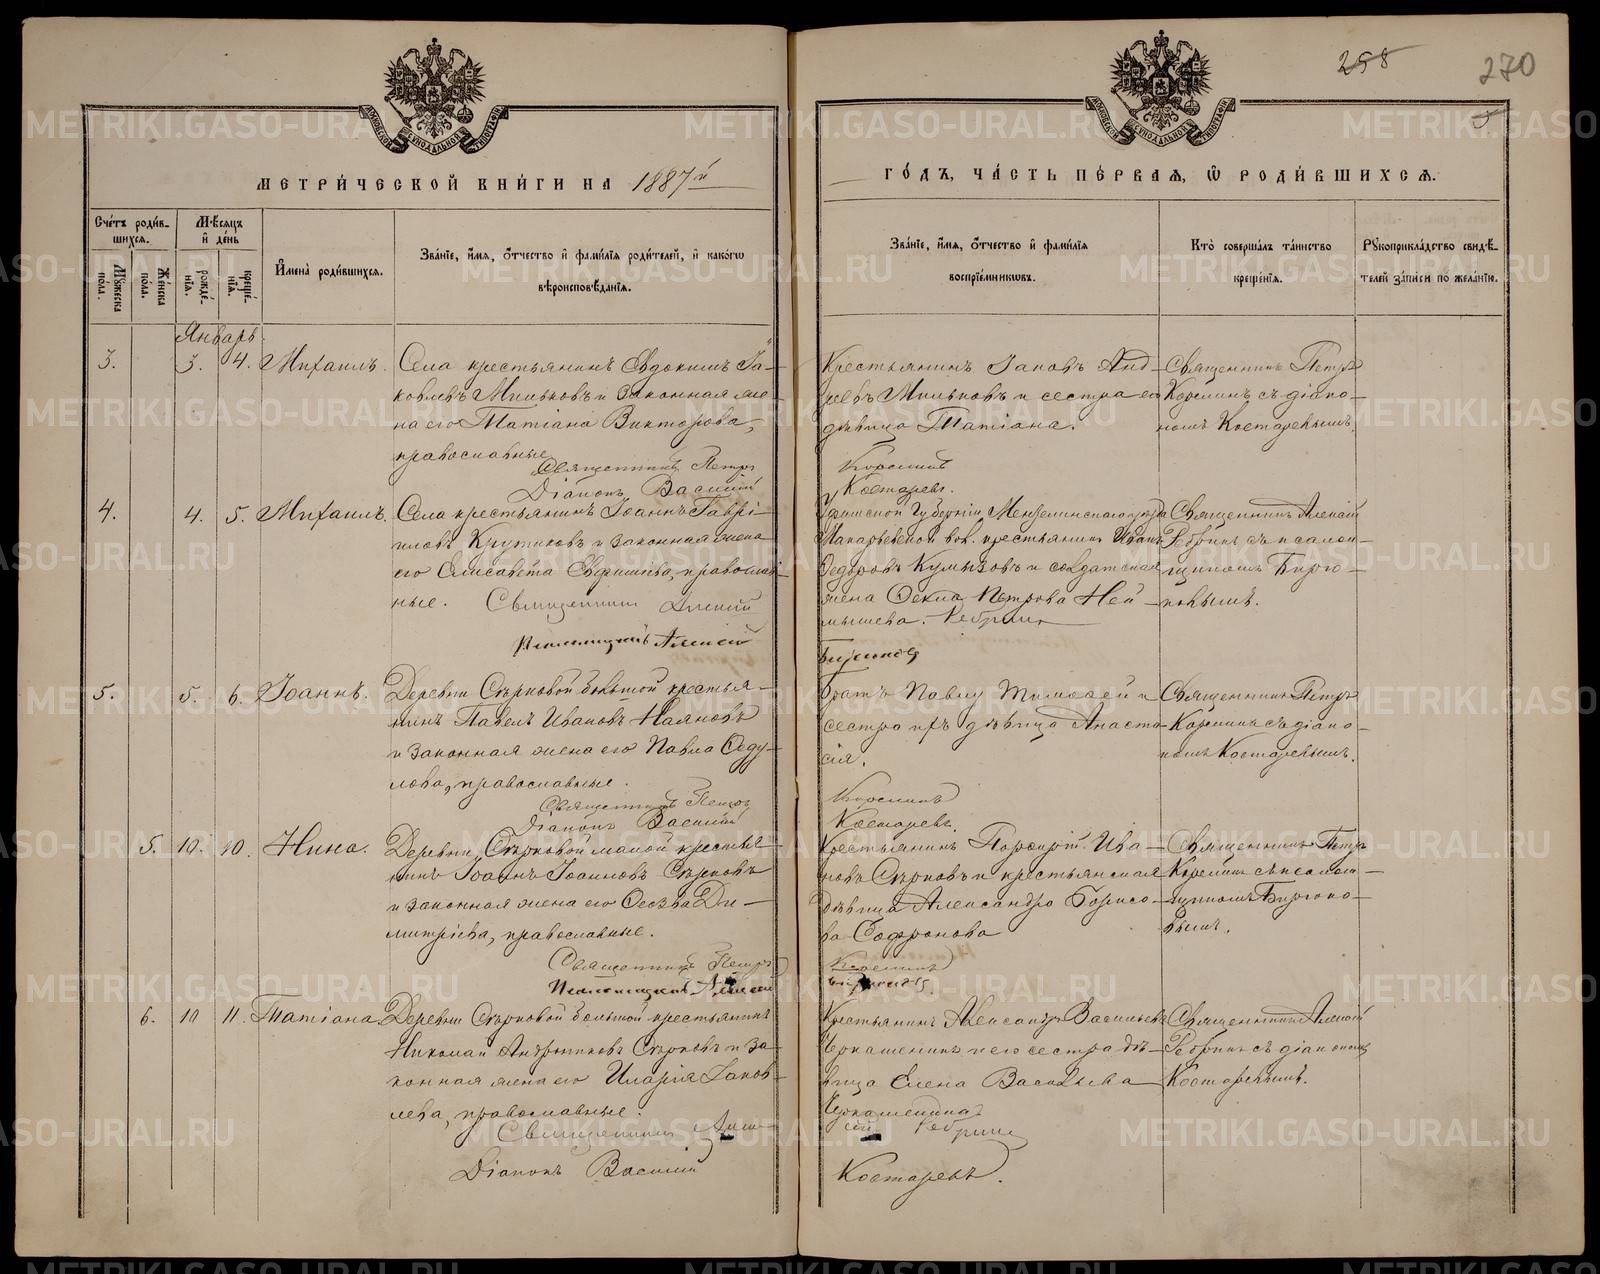 258
270
5
МЕТРИ́ЧЕСКОЙ КНИ́ГИ НА 1887й
ГО́ДЪ, ЧА́СТЬ ПЕ́РВАЯ, Ѡ РОДИ́ВШИХСЯ.
МОСКОВСКОЙ СѴНОДАЛЬНОЙ ТИПОГРАФІИ
МОСКОВСКОЙ СѴНОДАЛЬНОЙ ТИПОГРАФІИ
Сче́тъ роди́вшихся.
Мꙋ́жеска по́ла.
Же́нска по́ла.
Мѣ́сяцъ и҆ де́нь
рожде́нїѧ.
креще́нїѧ.
И҆мена̀ роди́вшихся.
Зва́нїе, и҆́мя, ѻ҆́тчество и҆ фами́лїя роди́телей, и҆ како́гѡ
вѣроисповѣ́данїя.
Зва́нїе, и҆́мя, ѻ҆́тчество и҆ фами́лїя
воспрїе́мниковъ.
Кто̀ соверша́лъ та́инство
креще́нїя.
Рꙋкоприкла́дство свидѣ́-
телей за́писи по жела́нїю.
Январь.
3. 3. 4. Михаилъ.
Села крестьянинъ Евдокимъ Іа-
ковлевъ Мильковъ и законная же-
на его Татіана Викторова,
православные
Священникъ Петръ
Діаконъ Василій
Крестьянинъ Іаковъ Анд-
реевъ Мильковъ и сестра его
дѣвица Татіана.
Корелинъ
Костаревъ.
Священникъ Петръ
Корелинъ съ діако-
номъ Костаревымъ.
4. 4. 5. Михаилъ.
Села крестьянинъ Іоаннъ Гаврі-
иловъ Крутиковъ и законная жена
его Елисавета Евфиміева, православ-
ные. Священникъ Алексій
Псаломщикъ Алексей
Уфимской губерніи Мензелинскаго уѣзда
Макарьевской вол. крестьянинъ Иванъ
Федоровъ Кумызовъ и солдатская
жена Фекла Петрова Ней-
мышева. Ребринъ
Бирюковъ
Священникъ Алексій
Ребринъ съ псалом-
щикомъ Бирю-
ковымъ.
5. 5. 6. Іоаннъ.
Деревни Сѣрковой большой крестья-
нинъ Павелъ Ивановъ Наяновъ
и законная жена его Павла Феду-
лова, православные.
Священникъ Петръ
Діаконъ Василій
Братъ Павлу Тимофей и
сестра ихъ дѣвица Анаста-
сія.
Корелинъ
Костаревъ.
Священникъ Петръ
Корелинъ съ діако-
номъ Костаревымъ.
5. 10. 10. Нина.
Деревни Сѣрковой малой крестья-
нинъ Іоаннъ Іоанновъ Сѣрковъ
и законная жена его Фесѳа Ди-
митріева, православные.
Священникъ Петръ
Псаломщикъ Алексей
Крестьянинъ Порфирій Ива-
новъ Сѣрковъ и крестьянская
дѣвица Александра Борисо-
ва Софронова
Корелинъ
Бирюковъ.
Священникъ Петръ
Корелинъ съ псалом-
щикомъ Бирюко-
вымъ.
6. 10 11. Татіана.
Деревни Сѣрковой большой крестьянинъ
Николай Андрониковъ Сѣрковъ и за-
конная жена его Иларія Іаков-
лева, православные.
Священникъ Алек-
Діаконъ Василій
Крестьянинъ Александръ Васильевъ
Черкашенинъ и его сестра дѣ-
вица Елена Васильева
Черкашенина
сій Ребринъ
Костаревъ.
Священникъ Алексій
Ребринъ съ діакономъ
Костаревымъ.
METRIKI.GASO-URAL.RU